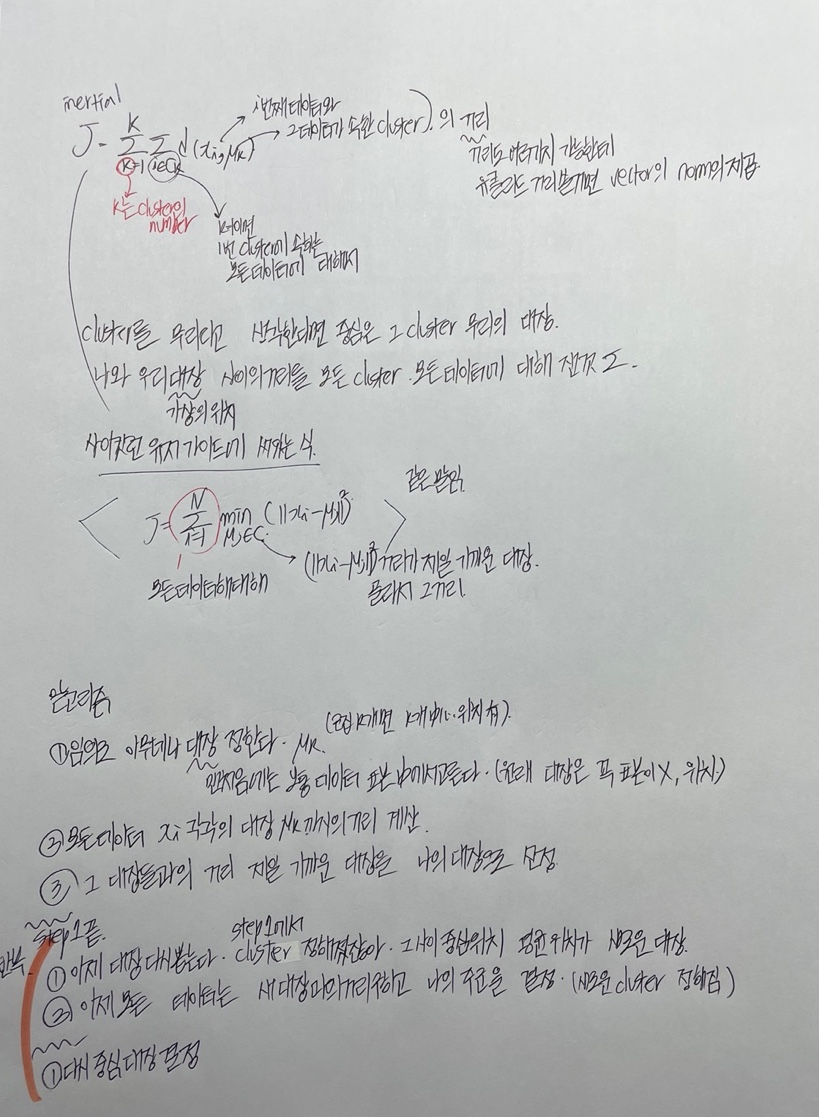 inertial
J = K Σ k=1 Σ i∈Ck d(xi, μk) → i번째 데이터와
→ 그 데이터가 속한 cluster). 의 거리
거리도 여러가지 가능한데
유클리드 거리쓸거면 vector의 norm의 제곱.
K는 cluster의
number
K=1이면
1번 cluster에 속하는
모든데이터에 대해서
cluster를 무리라고 생각한다면 중심은 그 cluster 무리의 대장.
나와 우리대장 사이의거리를 모든 cluster. 모든데이터에 대해 잰것 Σ.
가상의위치
사이킷런 유저가이드에 써있는 식.
같은 말임.
J = N Σ i=1 min μj∈C (||xi-μj||²)
→ (||xi-μj||²) 거리가 제일 가까운 대장.
모든데이터해대해
플러시 그거리.
알고리즘
①임의로 아무데나 대장 정한다. μk. (군집 K개면 K개 위치 有).
맨처음에는 보통 데이터 표본中에서고른다. (원래 대장은 꼭 표본이X, 위치.)
② 모든데이터 xi 각각의 대장 μk까지의거리 계산.
③ 그 대장들과의 거리 제일 가까운 대장을 나의대장으로 선정
step1끝.
step1에서
반복.
① 이제 대장 다시뽑는다. cluster 정해졌잖아. 그사이 중심위치 평균위치가 새로운 대장.
② 이제 모든 데이터는 새대장과의거리구하고 나의 주군을 결정. (새로운 cluster 정해짐)
①다시 중심,대장 결정